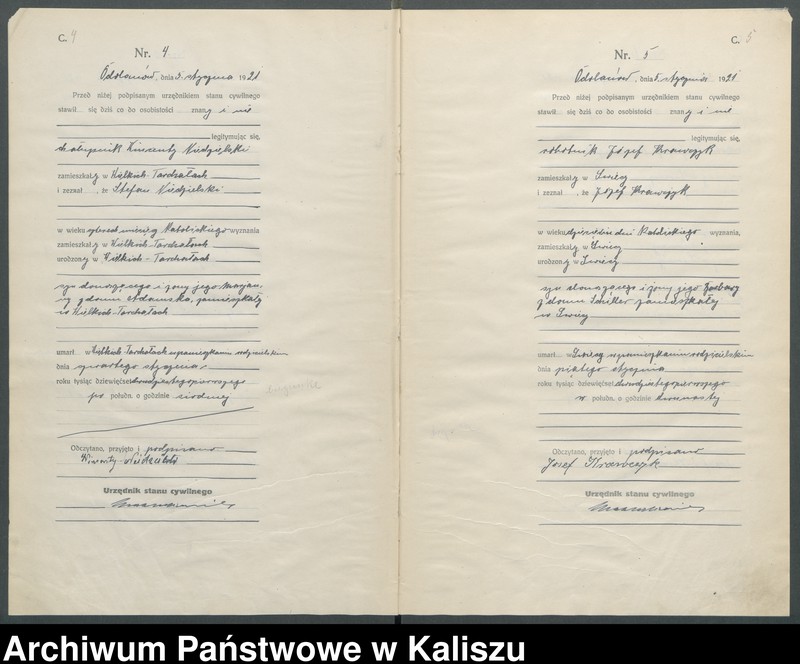 C. 4
Nr. 4
Odolanów, dnia 5. stycznia 1921
Przed niżej podpisanym urzędnikiem stanu cywilnego
stawił się dziś co do osobistości znany i nie
legitymując się,
chałupnik Wincenty Niedzielski
zamieszkały w Wielkich-Tarchałach
i zeznał, że Stefan Niedzielski
w wieku miesięcy Katolickiego wyznania
zamieszkały w Wielkich-Tarchałach
urodzony w Wielkich-Tarchałach
syn donoszącego i żony jego Marjan-
ny z domu Adamska, zamieszkały
w Wielkich-Tarchałach
umarł w Wielkich Tarchałach w pomieszkaniu rodzicielskim
dnia czwartego stycznia
roku tysiąc dziewięćset dwudziestego pierwszego
po połudn. o godzinie siódmej
Odczytano, przyjęto i podpisano
Wincenty Niedzielski
Urzędnik stanu cywilnego
C. 5
Nr. 5
Odolanów, dnia 5. stycznia 1921
Przed niżej podpisanym urzędnikiem stanu cywilnego
stawił się dziś co do osobistości znany i nie
legitymując się,
robotnik Józef Krawczyk
zamieszkały w Świecy
i zeznał, że Józef Krawczyk
w wieku dni Katolickiego wyznania,
zamieszkały w Świecy
urodzony w Świecy
syn donoszącego i żony jego Barbary
z domu Szniller zamieszkały
w Świecy
umarł w Świecy w pomieszkaniu rodzicielskim
dnia piątego stycznia
roku tysiąc dziewięćset dwudziestego pierwszego
w połudn. o godzinie dwunastej
Odczytano, przyjęto i podpisano
Josef Krawczyk
Urzędnik stanu cywilnego
Archiwum Państwowe w Kaliszu